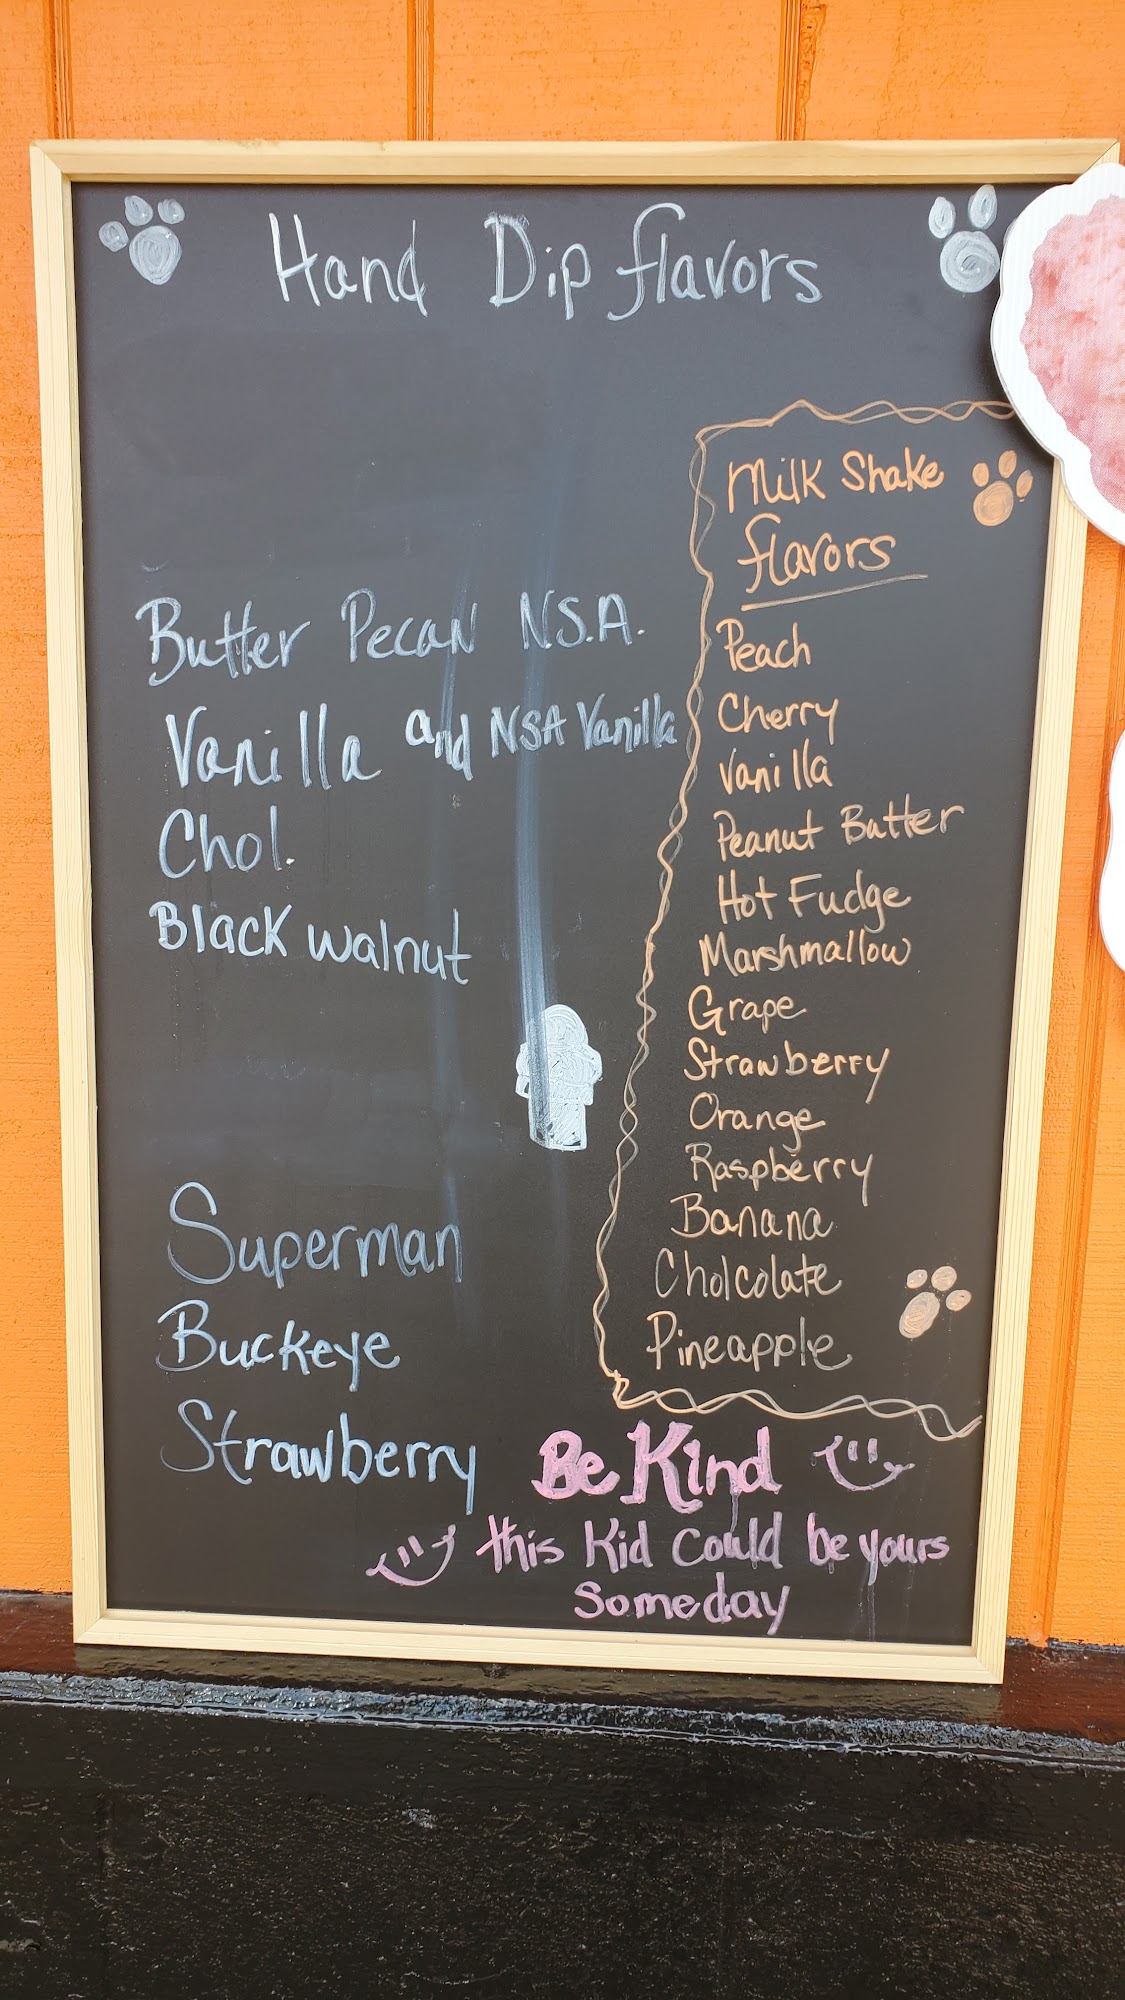 Hand Dip flavors
Butter Pecan N.S.A.
Vanilla and NSA Vanilla
Chol.
Black walnut
Superman
Buckeye
Strawberry
Milk Shake
flavors
Peach
Cherry
Vanilla
Peanut Butter
Hot Fudge
Marshmallow
Grape
Strawberry
Orange
Raspberry
Banana
Cholcolate
Pineapple
Be Kind
this Kid Could be yours
someday